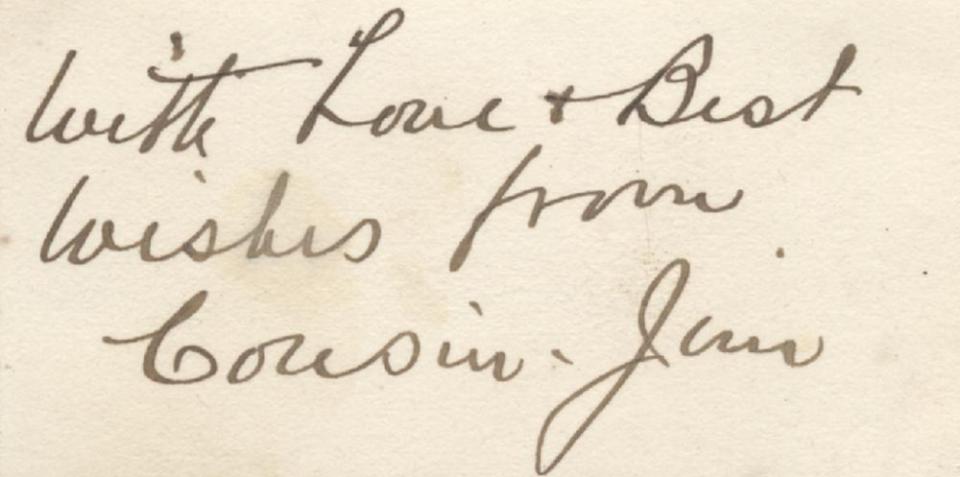 With Love + Best
Wishes from
Cousin. Jim